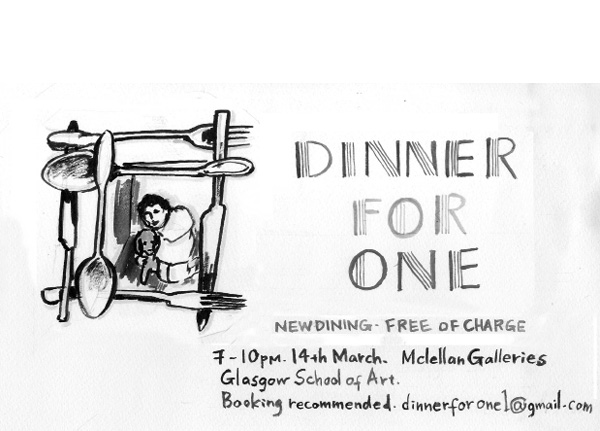 DINNER
FOR
ONE
NEWDINING - FREE OF CHARGE
7-10pm. 14th March. Mclellan Galleries
Glasgow School of Art.
Booking recommended. dinnerforone1@gmail.com